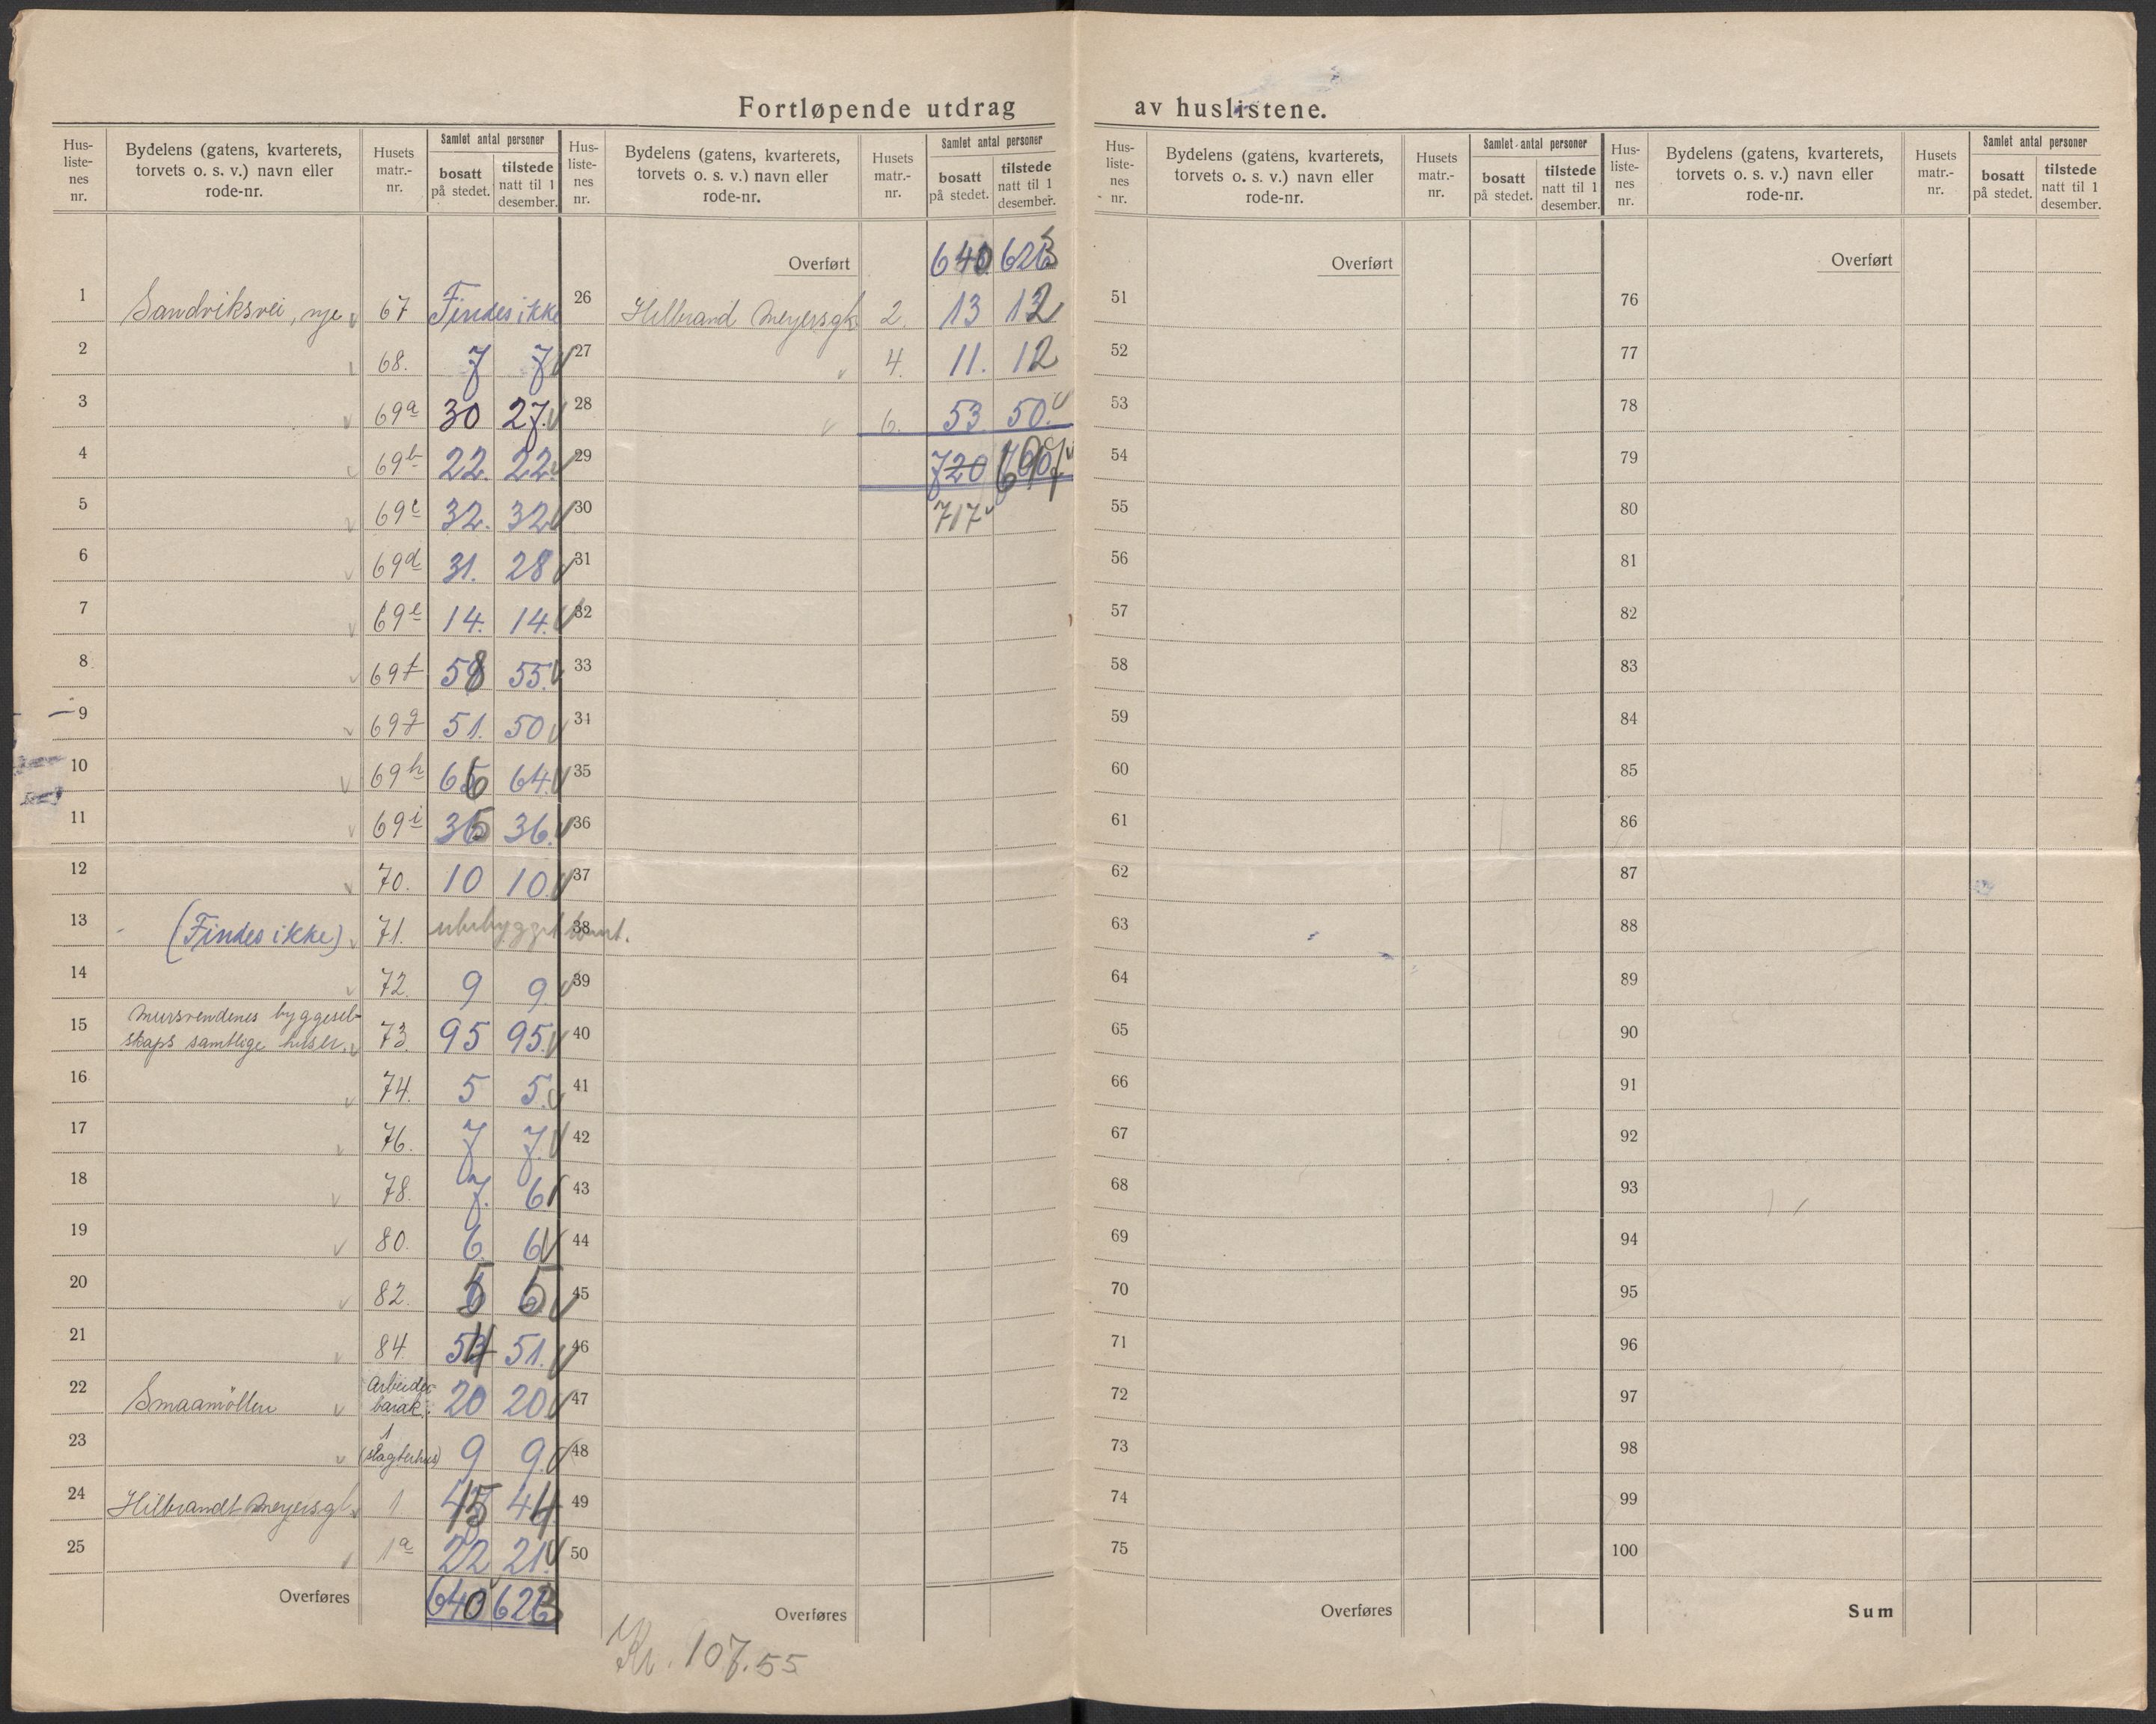 Fortløpende utdrag av huslistene.
Hus-liste-nes nr. Bydelens (gatens, kvarterets, torvets o. s. v.) navn eller rode-nr. Husets matr.-nr. Samlet antal personer bosatt på stedet. tilstede natt til 1 desember.
Hus-liste-nes nr. Bydelens (gatens, kvarterets, torvets o. s. v.) navn eller rode-nr. Husets matr.-nr. Samlet antal personer bosatt på stedet. tilstede natt til 1 desember.
Hus-liste-nes nr. Bydelens (gatens, kvarterets, torvets o. s. v.) navn eller rode-nr. Husets matr.-nr. Samlet antal personer bosatt på stedet. tilstede natt til 1 desember.
Hus-liste-nes nr. Bydelens (gatens, kvarterets, torvets o. s. v.) navn eller rode-nr. Husets matr.-nr. Samlet antal personer bosatt på stedet. tilstede natt til 1 desember.
1 Sandviksvei, nye 67 Findes ikke
2 68. 7 7
3 69a 30 27.
4 69b 22. 22.
5 69c 32. 32
6 69d 31. 28
7 69e 14. 14.
8 69f 58 55.
9 69g 51. 50
10 69h 66 64.
11 69i 35 36.
12 70. 10 10.
13 (Findes ikke) 71. ubebygget tomt.
14 72. 9 9.
15 Mursvendenes byggesel-
skaps samtlige huser. 73. 95 95.
16 74. 5 5.
17 76. 7 7.
18 78. 7. 6
19 80. 6. 6
20 82. 5 5
21 84 54 51.
22 Smaamöllen Arbeider-
barak. 20 20
23 1
(slagterhus) 9 9.
24 Hilbrandt Meyersgt. 1 45 44
25 1a 22 21.
Overføres 640 623
Overført 640 623
26 Hilbrand Meyersgt. 2. 13 12
27 4. 11. 12
28 6. 53. 50.
29 720 697
30 717
31
32
33
34
35
36
37
38
39
40
41
42
43
44
45
46
47
48
49
50
Overføres
Kr. 107.55
Overført
51
52
53
54
55
56
57
58
59
60
61
62
63
64
65
66
67
68
69
70
71
72
73
74
75
Overføres
Overført
76
77
78
79
80
81
82
83
84
85
86
87
88
89
90
91
92
93
94
95
96
97
98
99
100
Sum